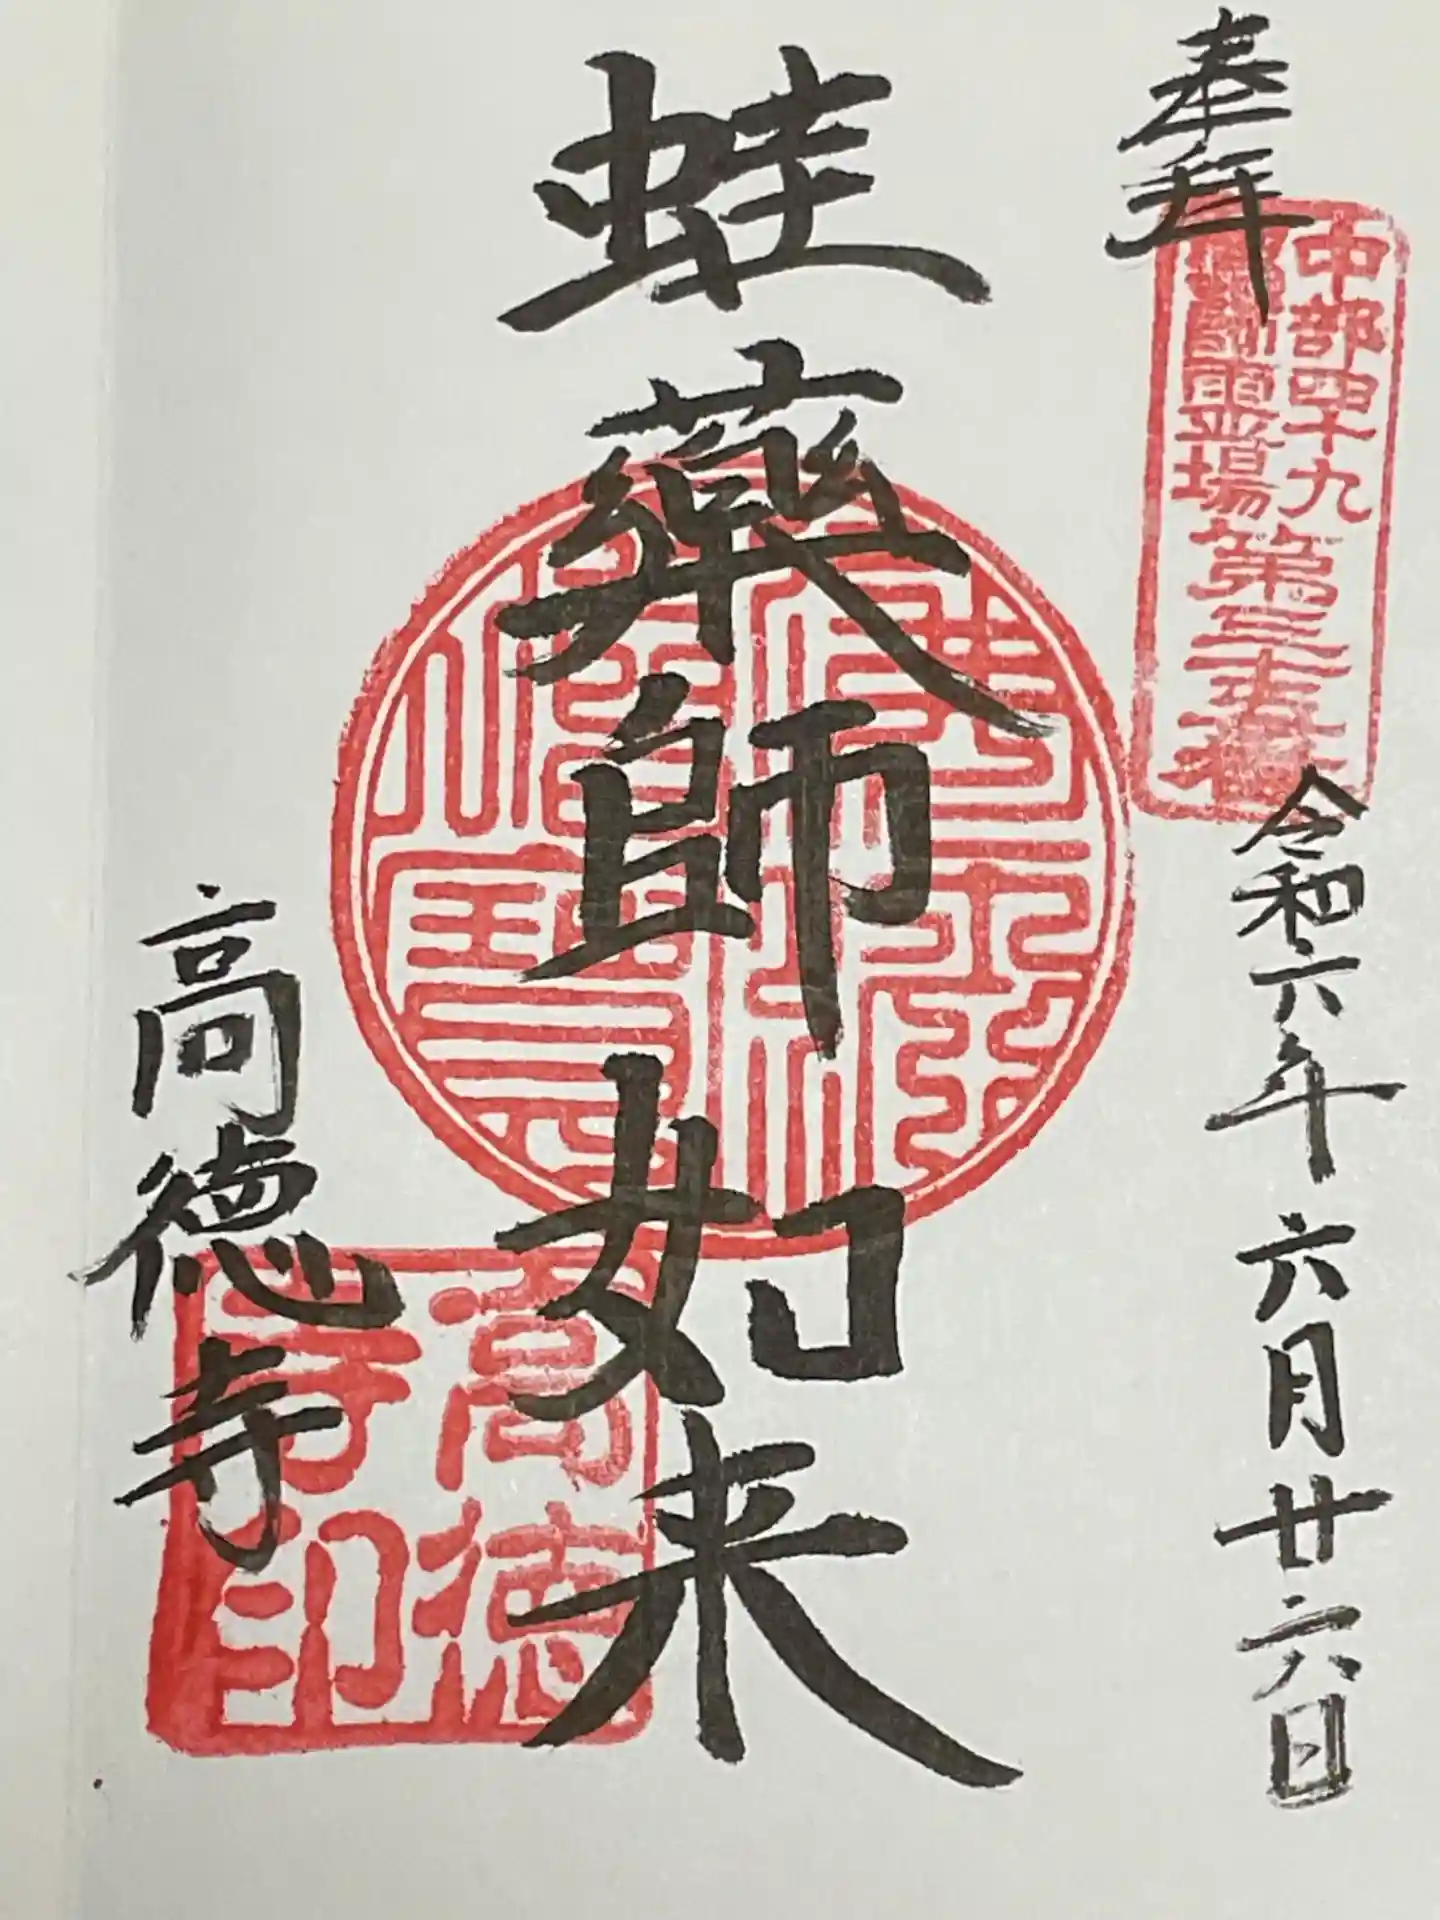 奉拝
中部四十九
薬師霊場
第三十五番
令和六年六月廿六日
蛙薬師如来
高徳寺
高徳
寺印